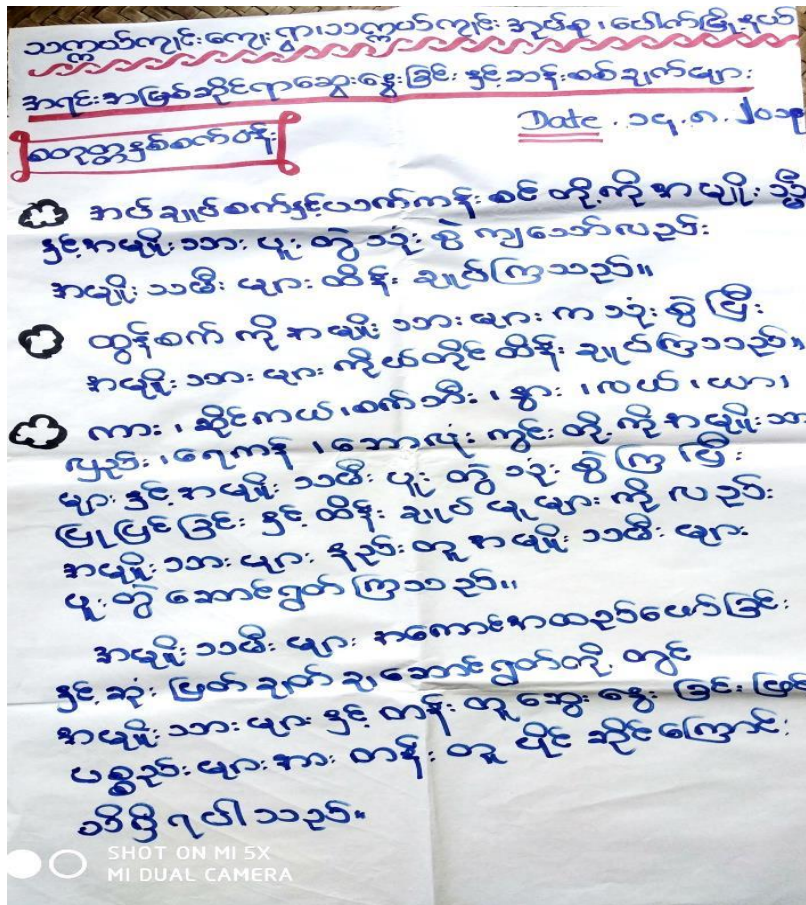 သက္ကယ်ကျင်းကျေးရွာ၊သက္ကယ်ကျင်း အုပ်စု၊ပေါက်မြို့နယ်
အရင်းအမြစ်ဆိုင်ရာဆွေးနွေးခြင်း နှင့်ဆန်းစစ်ချက်များ
စတုတ္ထနှစ်စက်ဝန်း
Date . ၁၄.၈.၂၀၁၉
အပ်ချုပ်စက်နှင့်ယက်ကန်း စင် တို့ကို အမျိုး သ္မီး
နှင့်အမျိုးသား ပူး တွဲ သုံး စွဲ ကျသော်လည်း
အမျိုး သမီး များ ထိန်း ချုပ်ကြသည်။
ထွန်စက် ကို အမျိုး သား များ က သုံး စွဲ ပြီး
အမျိုး သား များ ကိုယ်တိုင် ထိန်း ချုပ်ကြသည်။
ကား ၊ ဆိုင်ကယ် ၊စက်ဘီး ၊ နွား ၊လယ် ၊ ယာ ၊
လှည်း ၊ရေကန် ၊ဘောလုံး ကွင်း တို့ ကို အမျိုး သား
များ နှင့် အမျိုး သမီး ပူး တွဲ သုံး စွဲ ကြ ပြီး
ပြုပြင် ခြင်း နှင့် ထိန်း ချုပ် မှု များ ကို လည်း
အမျိုး သား များ နည်း တူ အမျိုး သမီး များ
ပူး တွဲ ဆောင် ရွတ် ကြသည်။
အမျိုး သမီး များ အကောင်အထည်ဖော်ခြင်း
နှင့် ဆုံး ဖြတ် ချက် ချ ဆောင် ရွတ်တို့ တွင်
အမျိုး သား များ နှင့် တန်း တူ ဆွေး နွေး ခြင်း ဖြင့်
ပစ္စည်း များ အား တန်း တူ ပိုင် ဆိုင် ကြောင်း
သိရှိ ရပါ သည်။
SHOT ON MI 5X
MI DUAL CAMERA